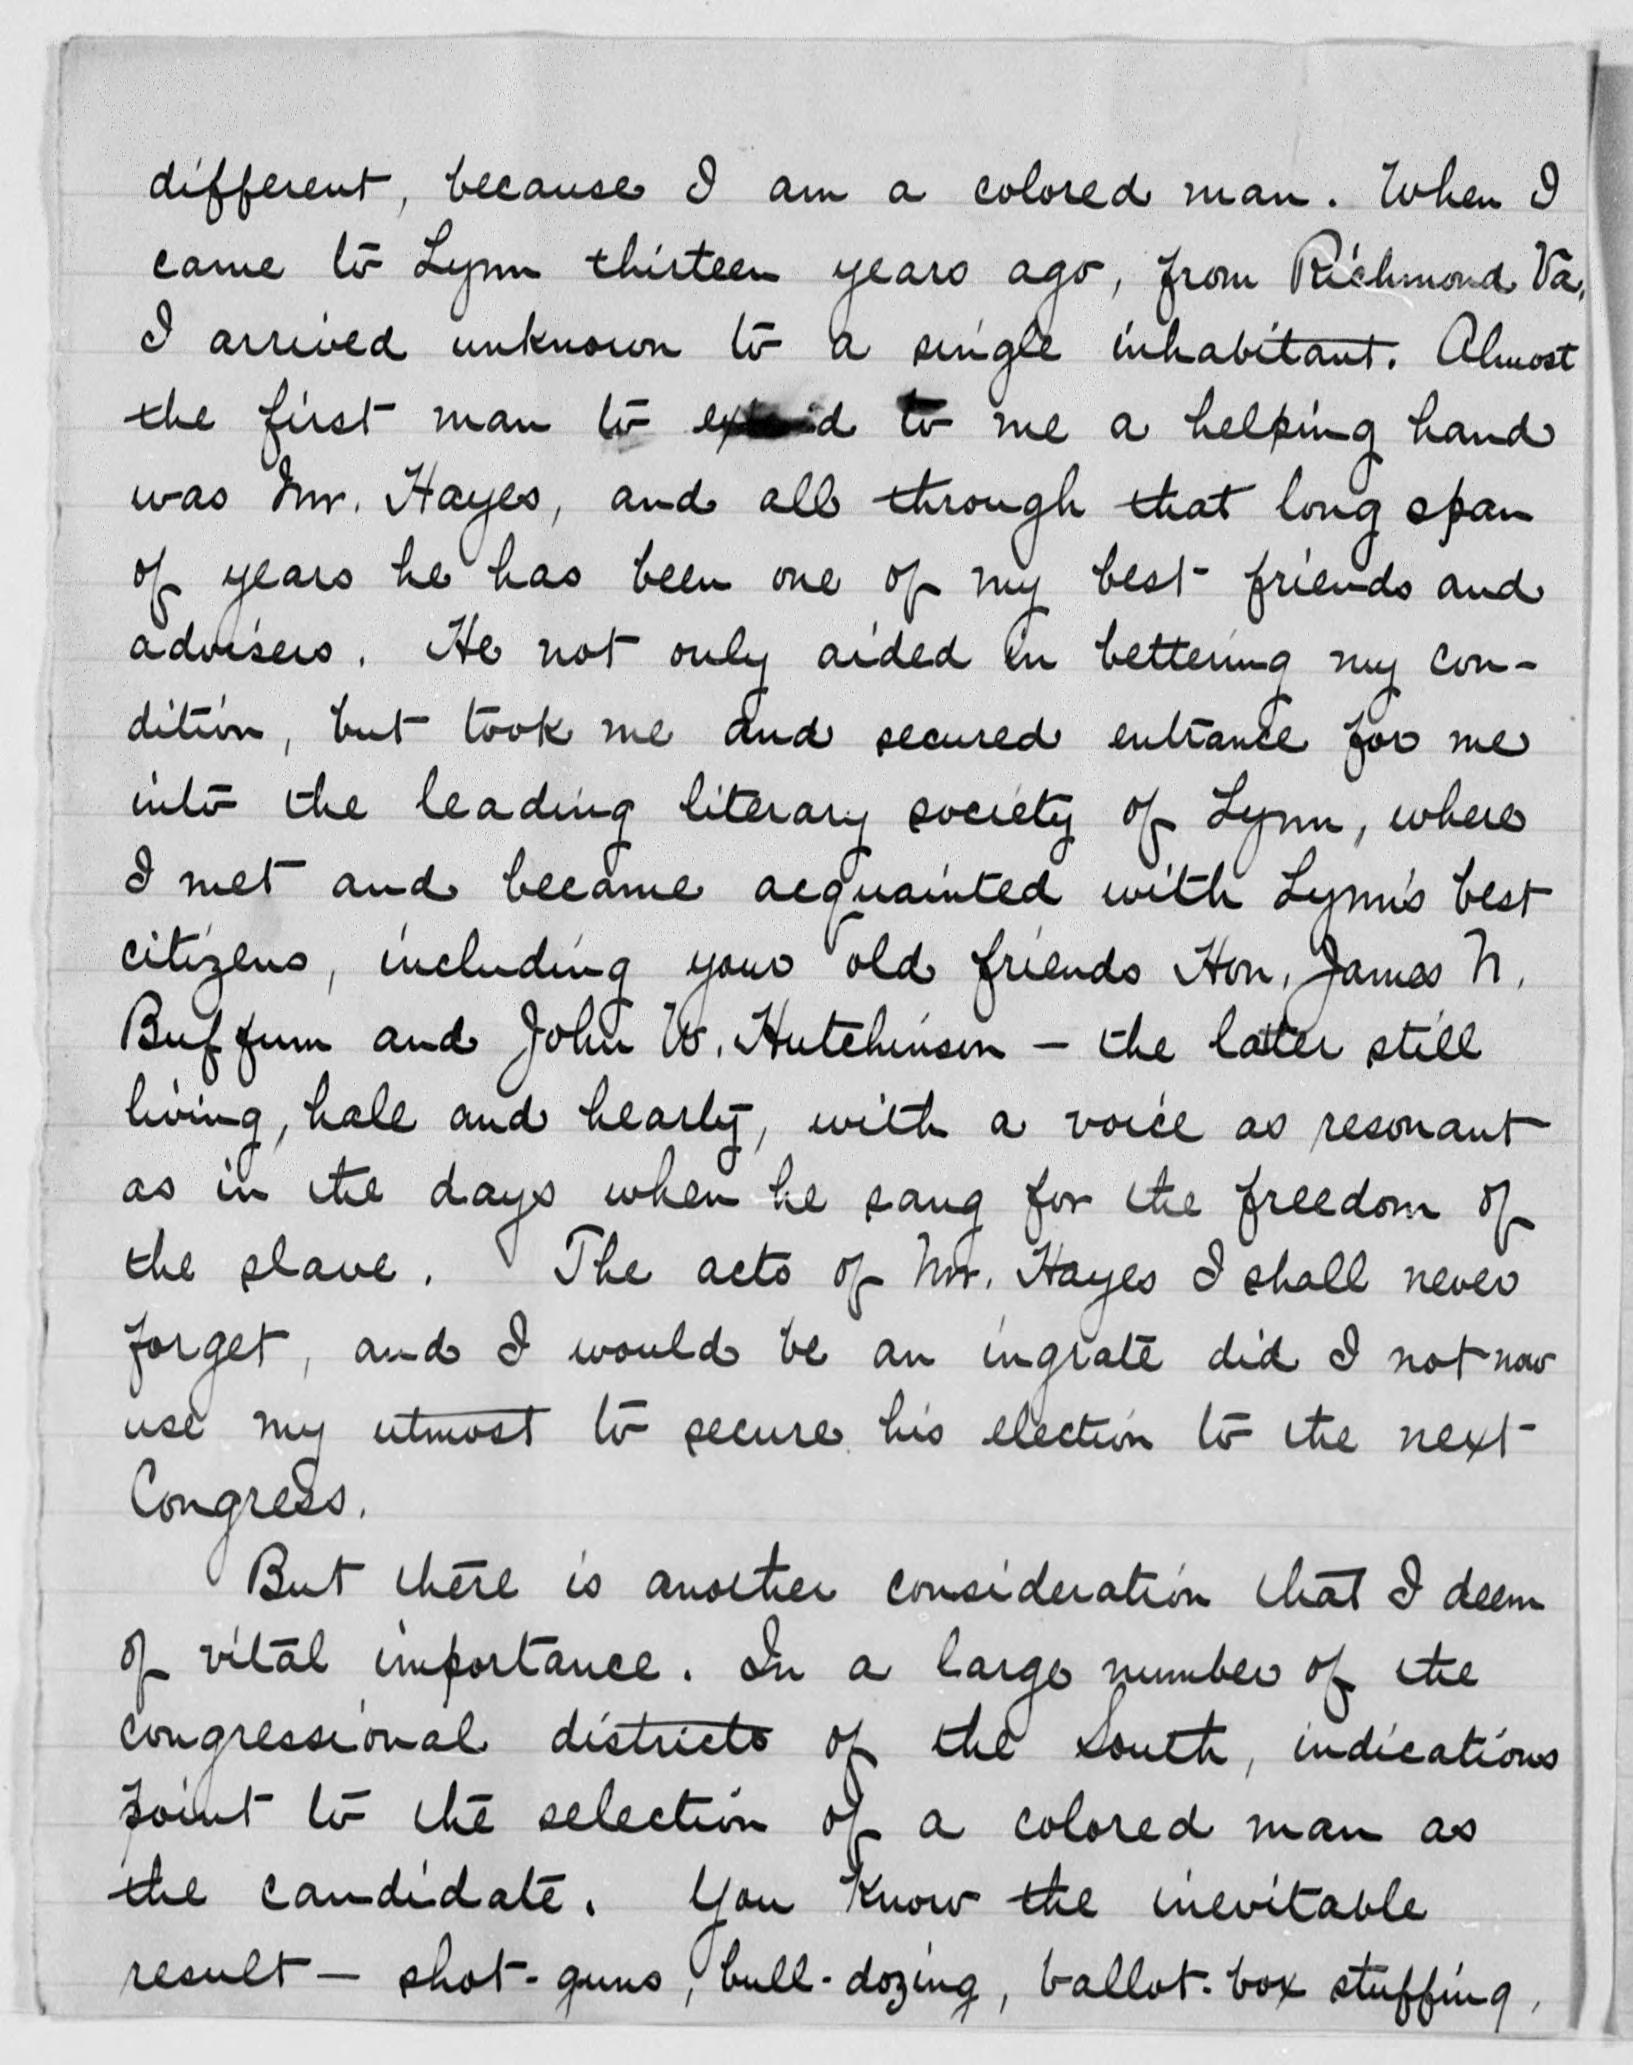 different, because I am a colored man. When I
came to Lynn thirteen years ago, from Richmond Va.
I arrived unknown to a single inhabitant. Almost
the first man to extend to me a helping hand
was Mr. Hayes, and all through that long span
of years he has been one of my best friends and
advisers. He not only aided in bettering my con-
dition, but took me and secured entrance for me
into the leading literary society of Lynn, where
I met and became acquainted with Lynn's best
citizens, including your old friends Hon. James N.
Buffum and John W. Hutchinson — the latter still
living, hale and hearty, with a voice as resonant
as in the days when he sang for the freedom of
the slave. The acts of Mr. Hayes I shall never
forget, and I would be an ingrate did I not now
use my utmost to secure his election to the next
Congress.
But there is another consideration that I deem
of vital importance. In a large number of the
congressional districts of the South, indications
point to the selection of a colored man as
the candidate. You know the inevitable
result — shot-guns, bull-dozing, ballot-box stuffing,